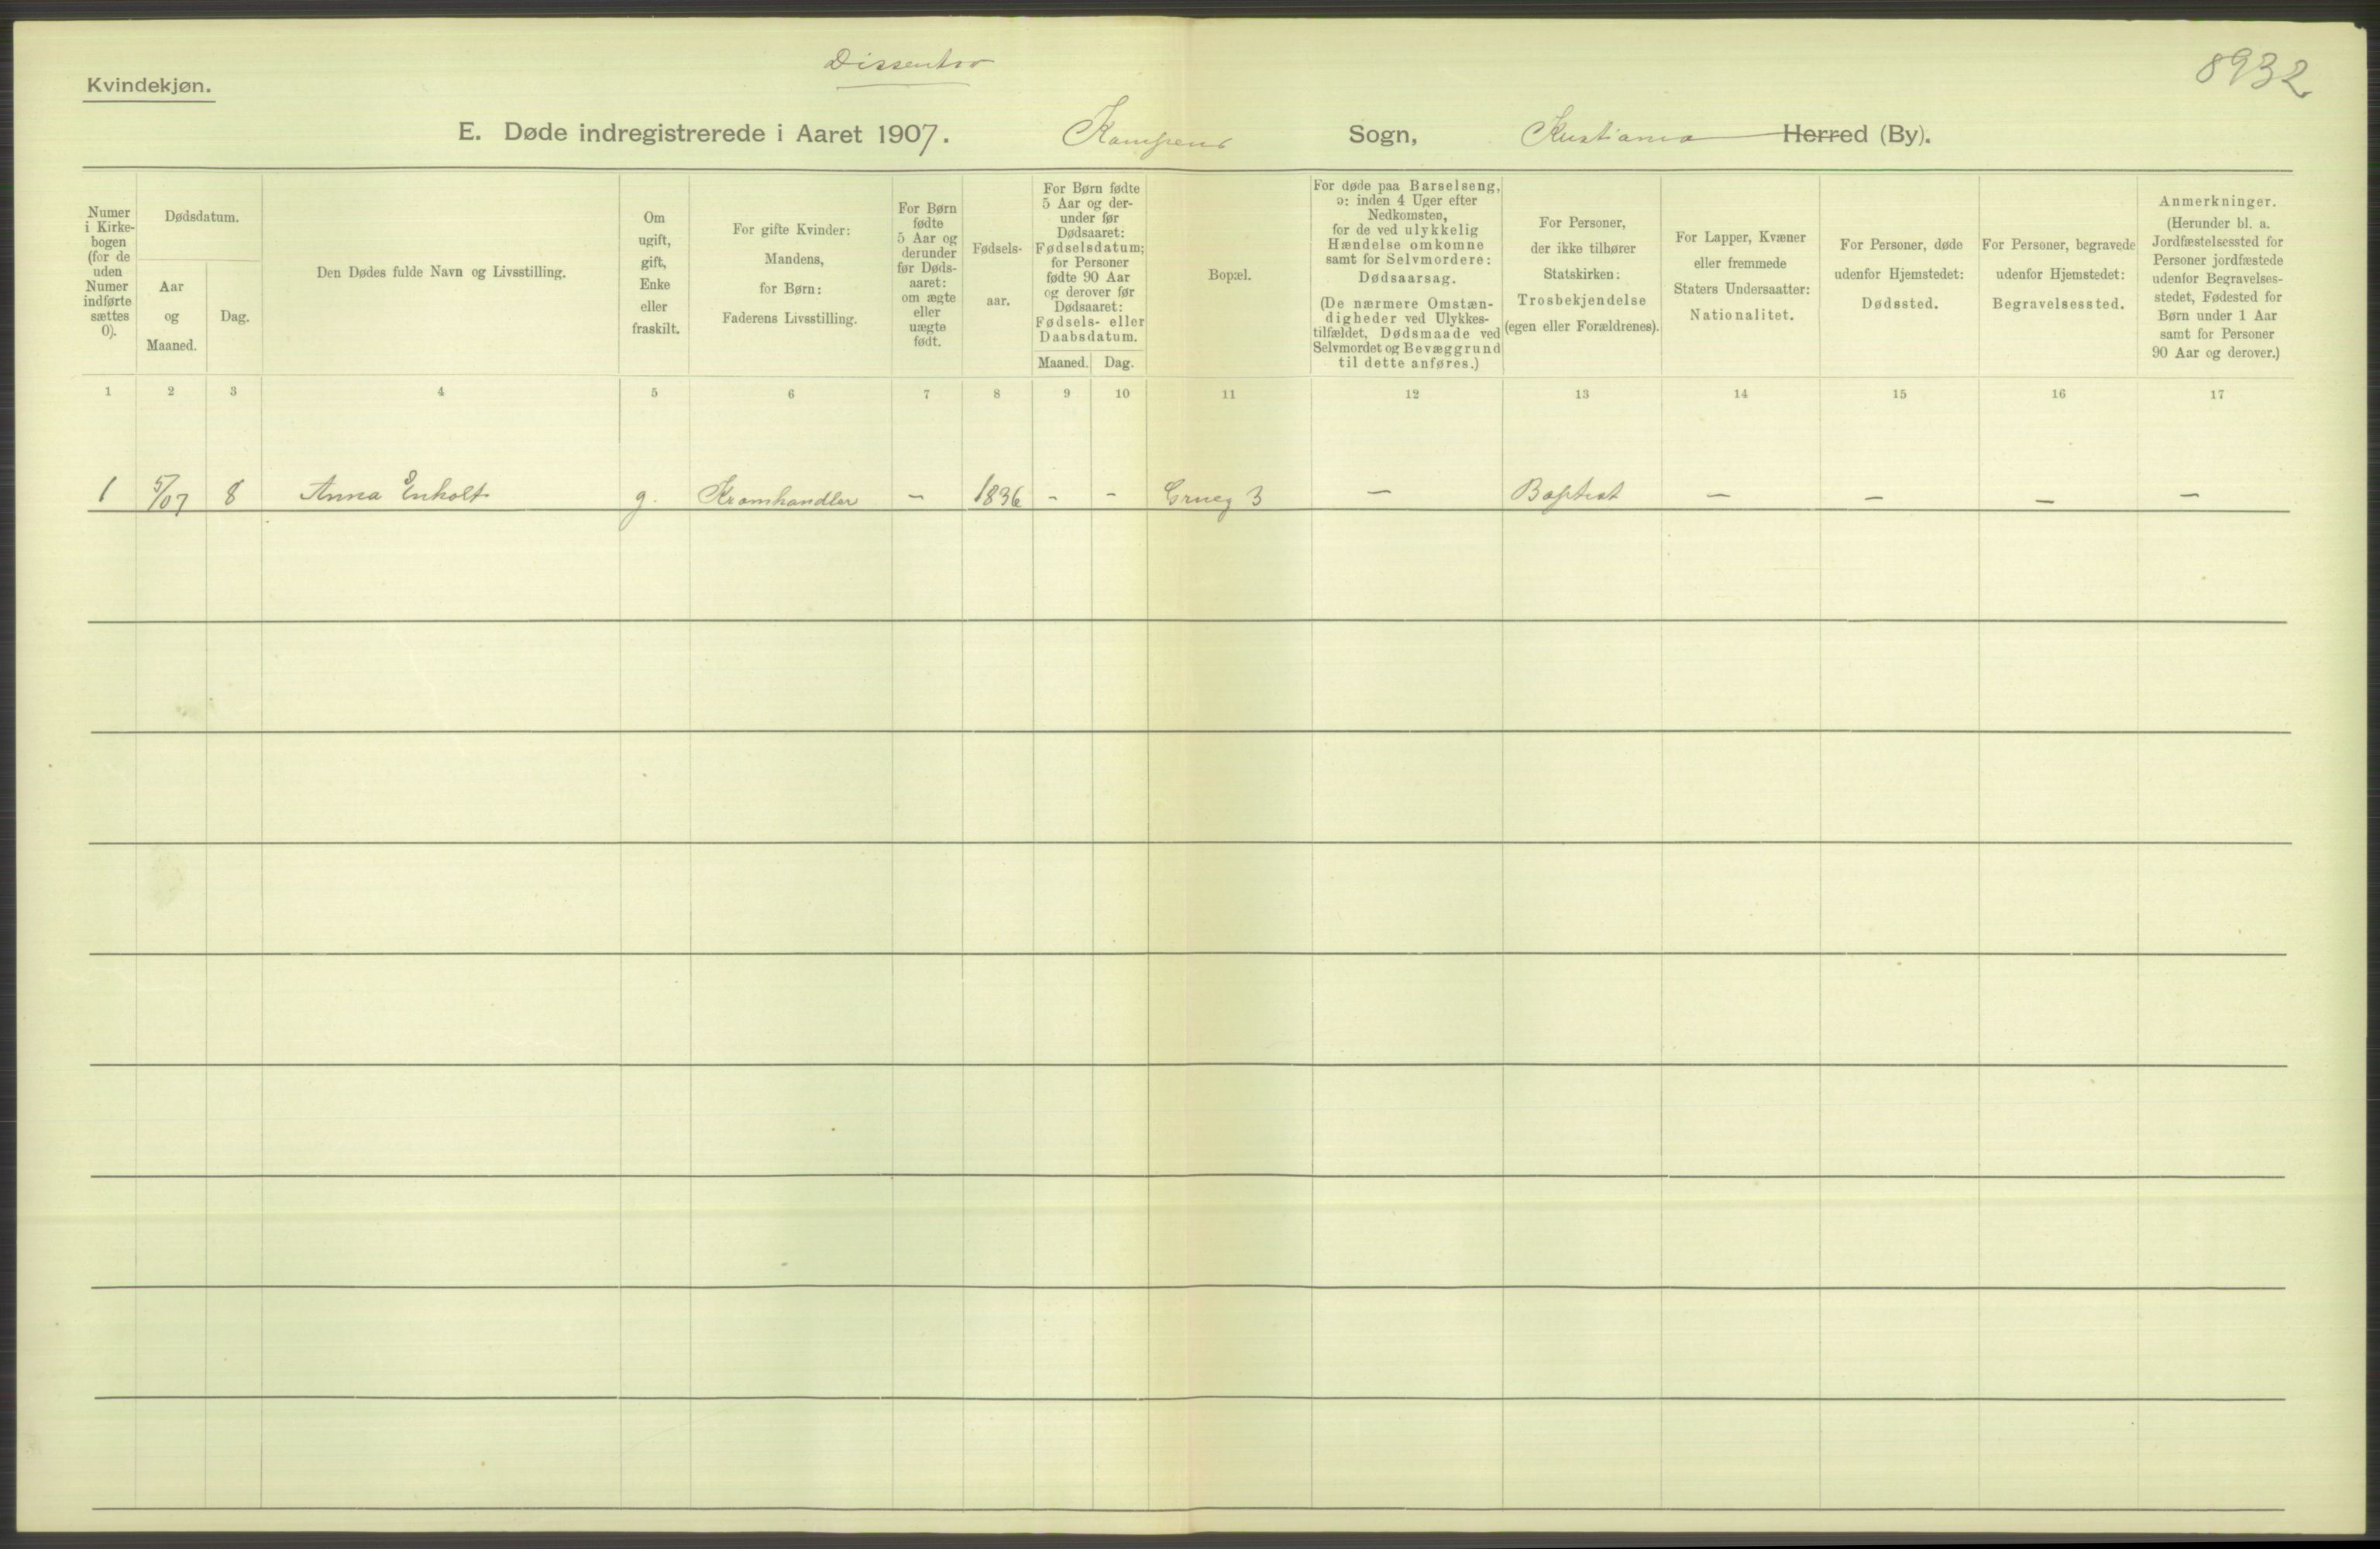 Dissentor
8932
Kvindekjøn.
E. Døde indregistrerede i Aaret 1907. Kampens Sogn, Kristiania Herred (By).
Numer
i Kirke-
bogen
(for de
uden
Numer
indførte
sættes
0).
Dødsdatum.
Aar
og
Maaned.
Dag.
Den Dødes fulde Navn og Livsstilling.
Om
ugift,
gift,
Enke
eller
fraskilt.
For gifte Kvinder:
Mandens,
for Børn:
Faderens Livsstilling.
For Børn
fødte
5 Aar og
derunder
før Døds-
aaret:
om ægte
eller
uægte
født.
Fødsels-
aar.
For Børn fødte
5 Aar og der-
under før
Dødsaaret:
Fødselsdatum;
for Personer
fødte 90 Aar
og derover før
Dødsaaret:
Fødsels- eller
Daabsdatum.
Maaned. Dag.
Bopæl.
For døde paa Barselseng,
ɔ: inden 4 Uger efter
Nedkomsten,
for de ved ulykkelig
Hændelse omkomne
samt for Selvmordere:
Dødsaarsag.
(De nærmere Omstæn-
digheder ved Ulykkes-
tilfældet, Dødsmaade ved
Selvmordet og Bevæggrund
til dette anføres.)
For Personer,
der ikke tilhører
Statskirken:
Trosbekjendelse
(egen eller Forældrenes).
For Lapper, Kvæner
eller fremmede
Staters Undersaatter:
Nationalitet.
For Personer, døde
udenfor Hjemstedet:
Dødssted.
For Personer, begravede
udenfor Hjemstedet:
Begravelsessted.
Anmerkninger.
(Herunder bl. a.
Jordfæstelsessted for
Personer jordfæstede
udenfor Begravelses-
stedet, Fødested for
Børn under 1 Aar
samt for Personer
90 Aar og derover.)
1 2 3 4 5 6 7 8 9 10 11 12 13 14 15 16 17
1 5/07 8 Anna Enholt g. Kramhandler – 1836 - - Grueg 3 – Baptist – – – –